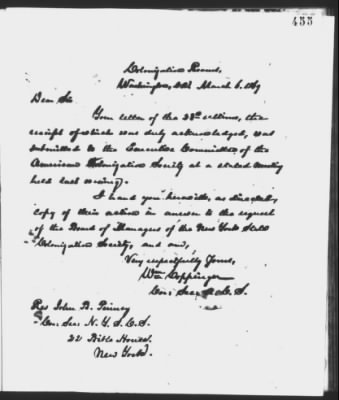 455
Colonization Rooms,
Washington, March 6, 1869
Dear Sir
Your letter of the 23d ultimo, the
receipt of which was duly acknowledged, was
submitted to the Executive Committee of the
American Colonization Society at a stated meeting
held last evening.
I hand you herewith, as directed,
copy of their action in answer to the request
of the Board of Managers of the New York State
Colonization Society, and am,
Very respectfully Yours,
Wm Coppinger
Cor: Sec: A. C. S.
Rev John B. Pinney
Cor. Sec. N. Y. S. C. S.
22 Bible House.
New York.